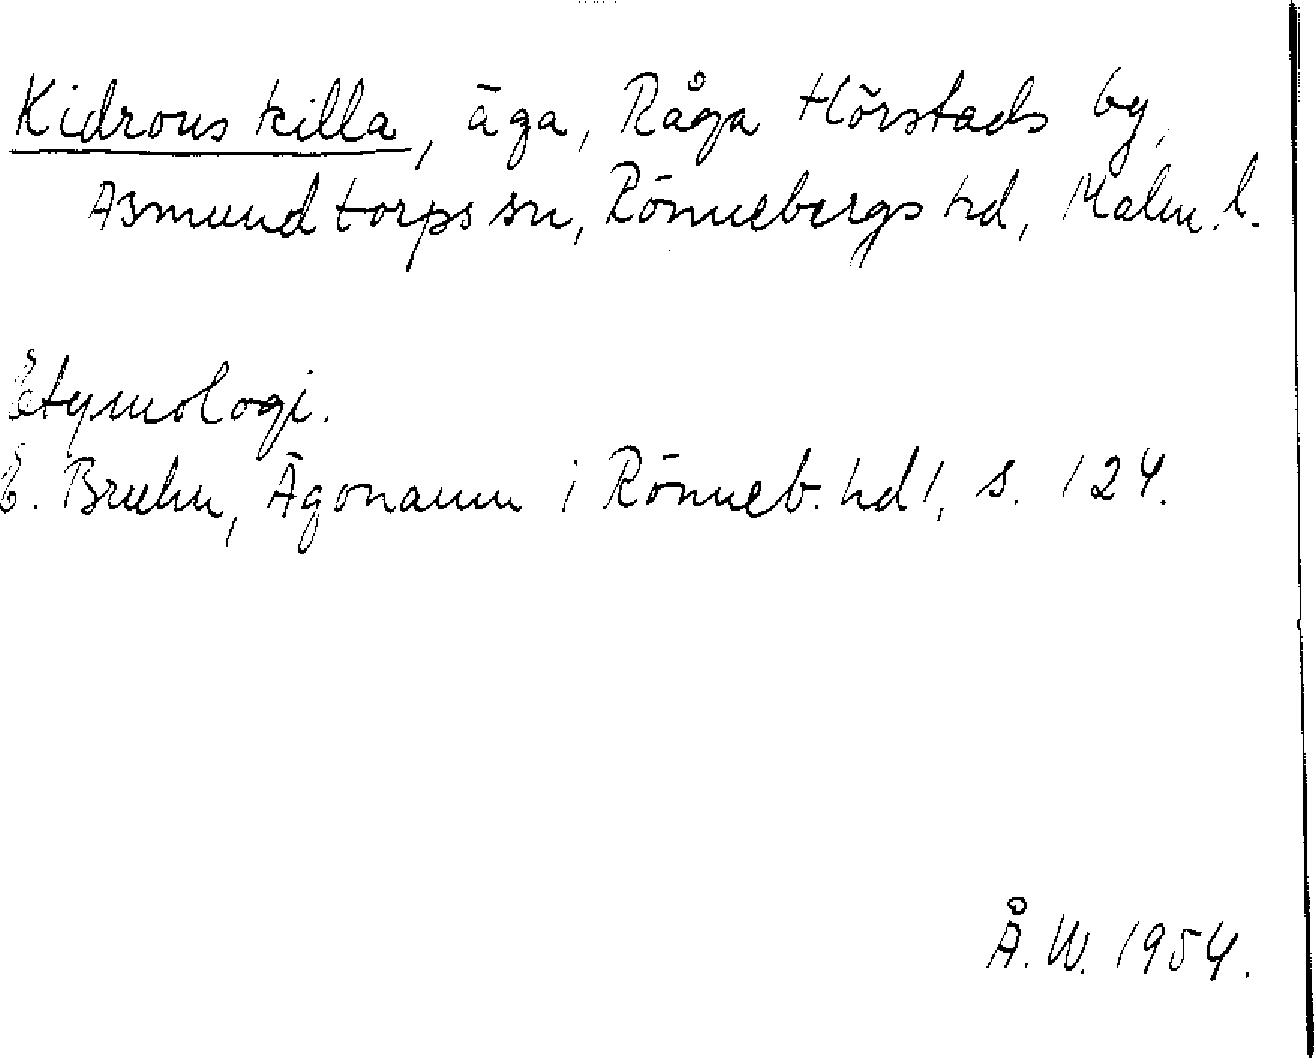 Kidrons killa, äga, Råga Hörstads by,
Asmundtorps sn, Rönnebergs hd, Malm. l.
Etymologi.
E. Bruhn, Ägonamn i Rönneb. hd 1, s. 124.
Å. W. 1954.